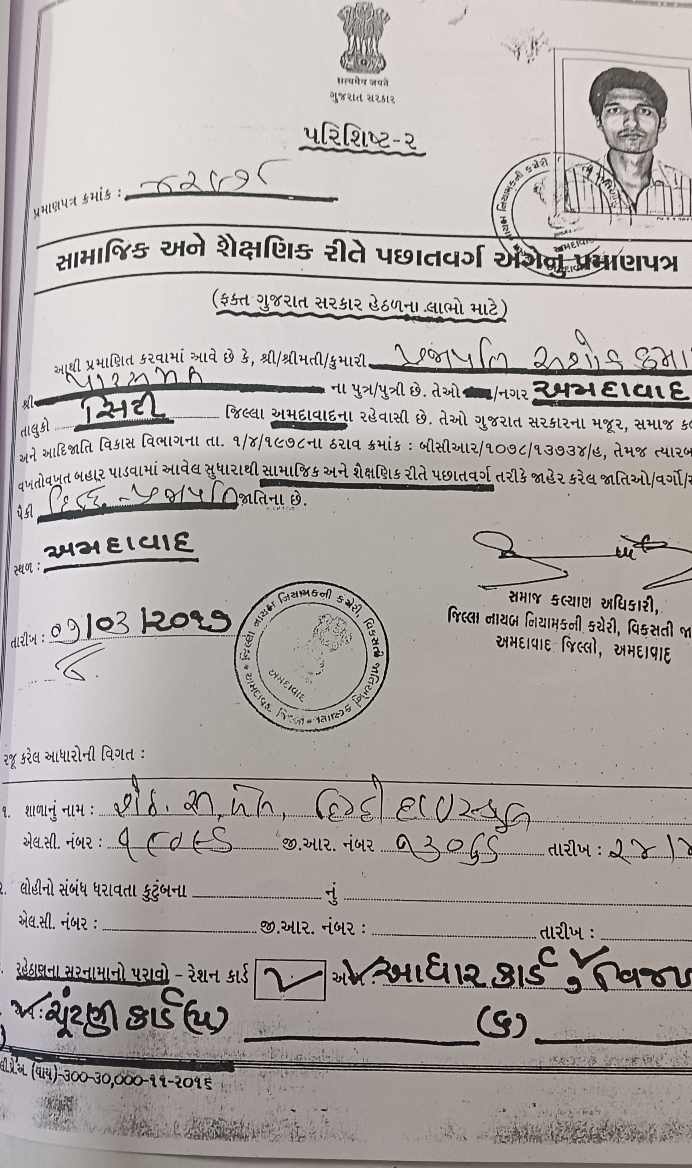 सत्यमेव जयते
ગુજરાત સરકાર
પરિશિષ્ટ-૨
પ્રમાણપત્ર ક્રમાંક :
સામાજિક અને શૈક્ષણિક રીતે પછાતવર્ગ અંગેનું પ્રમાણપત્ર
(ફક્ત ગુજરાત સરકાર હેઠળના લાભો માટે)
આથી પ્રમાણિત કરવામાં આવે છે કે, શ્રી/શ્રીમતી/કુમારી પ્રજાપતિ અશોક કુમા
શ્રી ના પુત્ર/પુત્રી છે. તેઓ /નગર અમદાવાદ
તાલુકો સિટી જિલ્લા અમદાવાદના રહેવાસી છે. તેઓ ગુજરાત સરકારના મજૂર, સમાજ ક
અને આદિજાતિ વિકાસ વિભાગના તા. ૧/૪/૧૯૭૮ના ઠરાવ ક્રમાંક : બીસીઆર/૧૦૭૮/૧૩૭૩૪/હ, તેમજ ત્યારબ
વખતોવખત બહાર પાડવામાં આવેલ સુધારાથી સામાજિક અને શૈક્ષણિક રીતે પછાતવર્ગ તરીકે જાહેર કરેલ જાતિઓ/વર્ગો/
પૈકી હિન્દુ - પ્રજાપતિ જાતિના છે.
સ્થળ : અમદાવાદ
તારીખ : ૦૧/૦૩/૨૦૧૭
સમાજ કલ્યાણ અધિકારી,
જિલ્લા નાયબ નિયામકની કચેરી, વિકસતી જા
અમદાવાદ જિલ્લો, અમદાવાદ
જિલ્લા નાયબ નિયામકની કચેરી, વિકસતી જાતિઓનું કલ્યાણ
અમદાવાદ
રજૂ કરેલ આધારોની વિગત :
૧. શાળાનું નામ : શેઠ. હિન્દી હાઈસ્કુલ
એલ.સી. નંબર : જી.આર. નંબર ૧૩૦૬૬ તારીખ : ૨૪/
૨. લોહીનો સંબંધ ધરાવતા કુટુંબના નું
એલ.સી. નંબર : જી.આર. નંબર : તારીખ :
રહેઠાણના સરનામાનો પુરાવો - રેશન કાર્ડ આધાર કાર્ડ
ચૂંટણી કાર્ડ (૫) (૬)
(વાય)-300-30,000-૧૧-૨૦૧૬